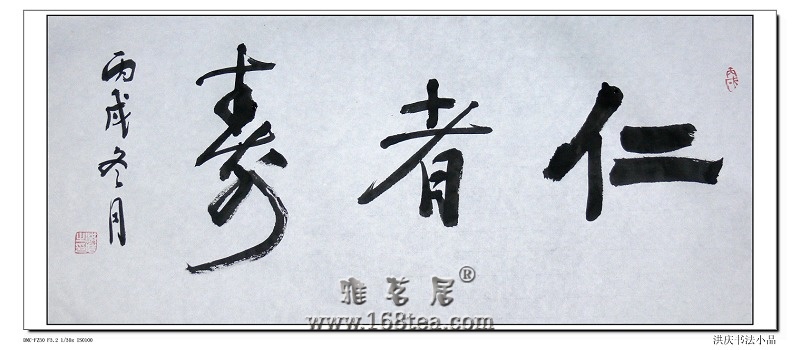 仁者寿
丙戌冬月
雅茗居®
www.168tea.com
DMC-FZ50 F3.2 1/30s ISO100
洪庆书法小品